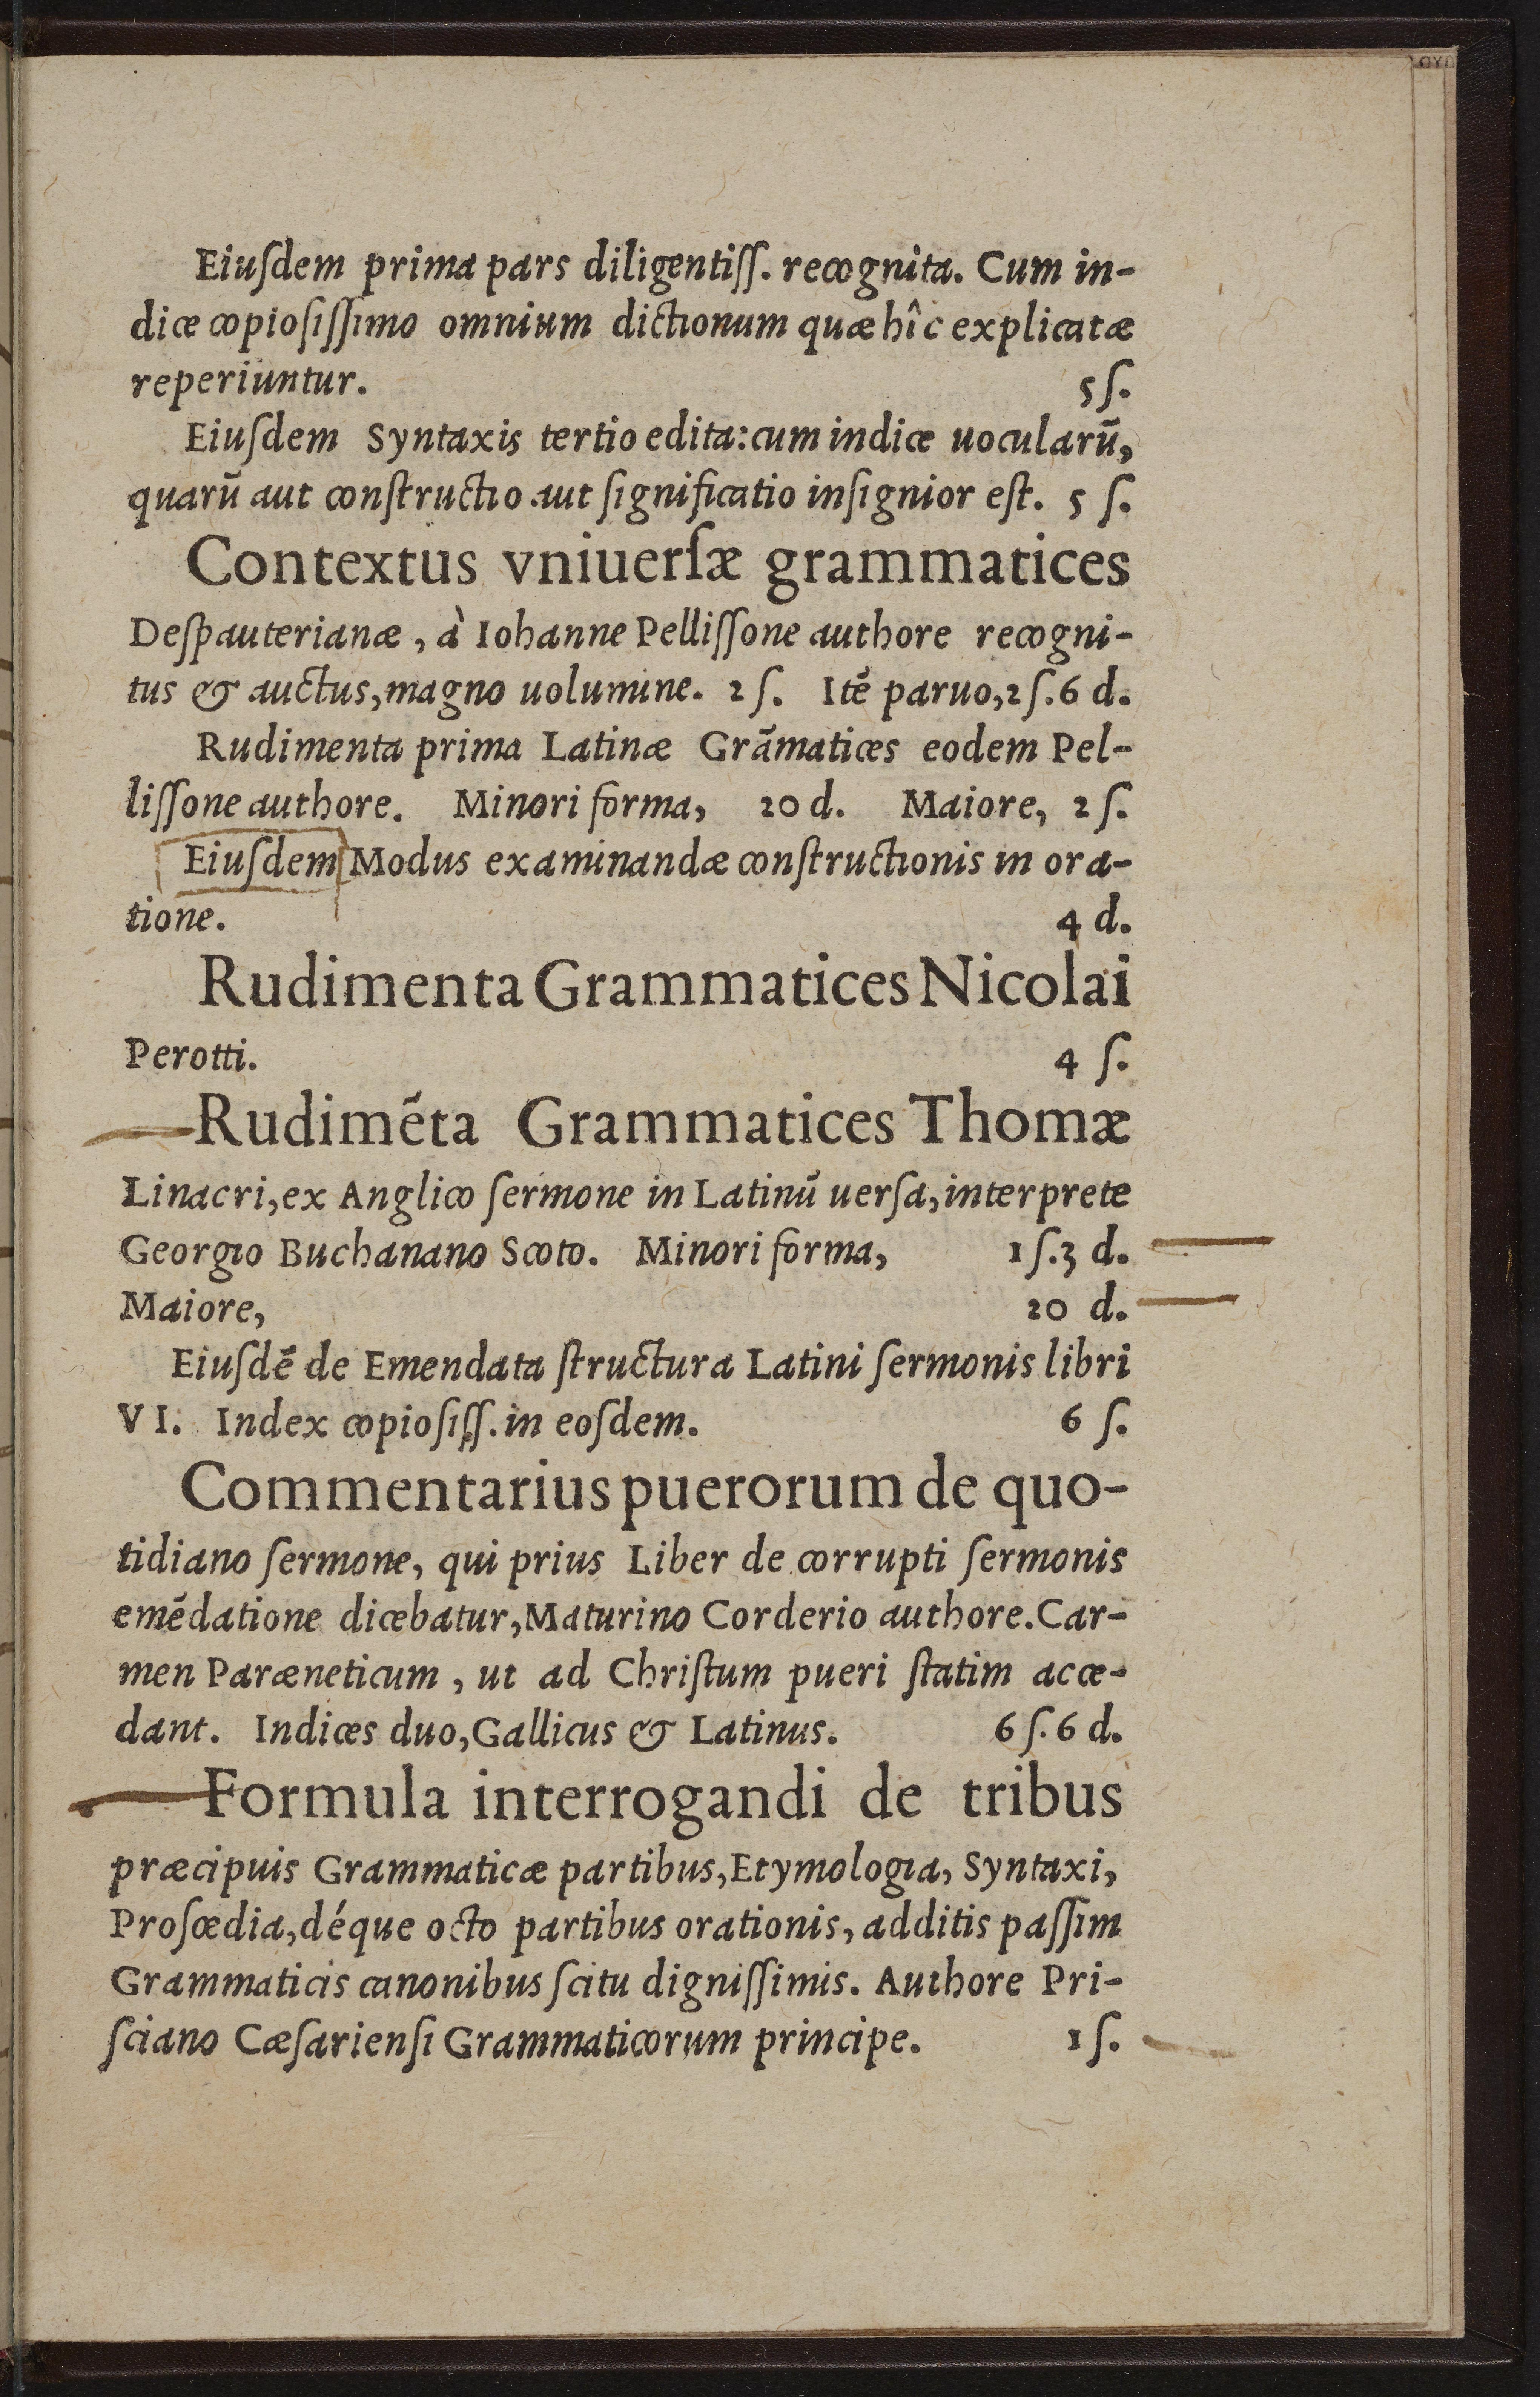 Eiuſdem prima pars diligentiſſ. recognita. Cum in-
dice copioſiſſimo omnium dictionum quæ hîc explicatæ
reperiuntur. 5 ſ.
Eiuſdem Syntaxis tertio edita: cum indice uocularū,
quarū aut conſtructio aut ſignificatio inſignior eſt. 5 ſ.
Contextus vniuerſæ grammatices
Deſpauterianæ, à Iohanne Pelliſſone authore recogni-
tus & auctus, magno uolumine. 2 ſ. Itē paruo, 2 ſ. 6 d.
Rudimenta prima Latinæ Grāmatices eodem Pel-
liſſone authore. Minori forma, 20 d. Maiore, 2 ſ.
Eiuſdem Modus examinandæ conſtructionis in ora-
tione. 4 d.
Rudimenta Grammatices Nicolai
Perotti. 4 ſ.
Rudimēta Grammatices Thomæ
Linacri, ex Anglico ſermone in Latinū uerſa, interprete
Georgio Buchanano Scoto. Minori forma, 1 ſ. 3 d.
Maiore, 20 d.
Eiuſdē de Emendata ſtructura Latini ſermonis libri
VI. Index copioſiſſ. in eoſdem. 6 ſ.
Commentarius puerorum de quo-
tidiano ſermone, qui prius Liber de corrupti ſermonis
emēdatione dicebatur, Maturino Corderio authore. Car-
men Paræneticum, ut ad Chriſtum pueri ſtatim acce-
dant. Indices duo, Gallicus & Latinus. 6 ſ. 6 d.
Formula interrogandi de tribus
præcipuis Grammaticæ partibus, Etymologia, Syntaxi,
Proſœdia, déque octo partibus orationis, additis paſſim
Grammaticis canonibus ſcitu digniſſimis. Authore Pri-
ſciano Cæſarienſi Grammaticorum principe. 1 ſ.